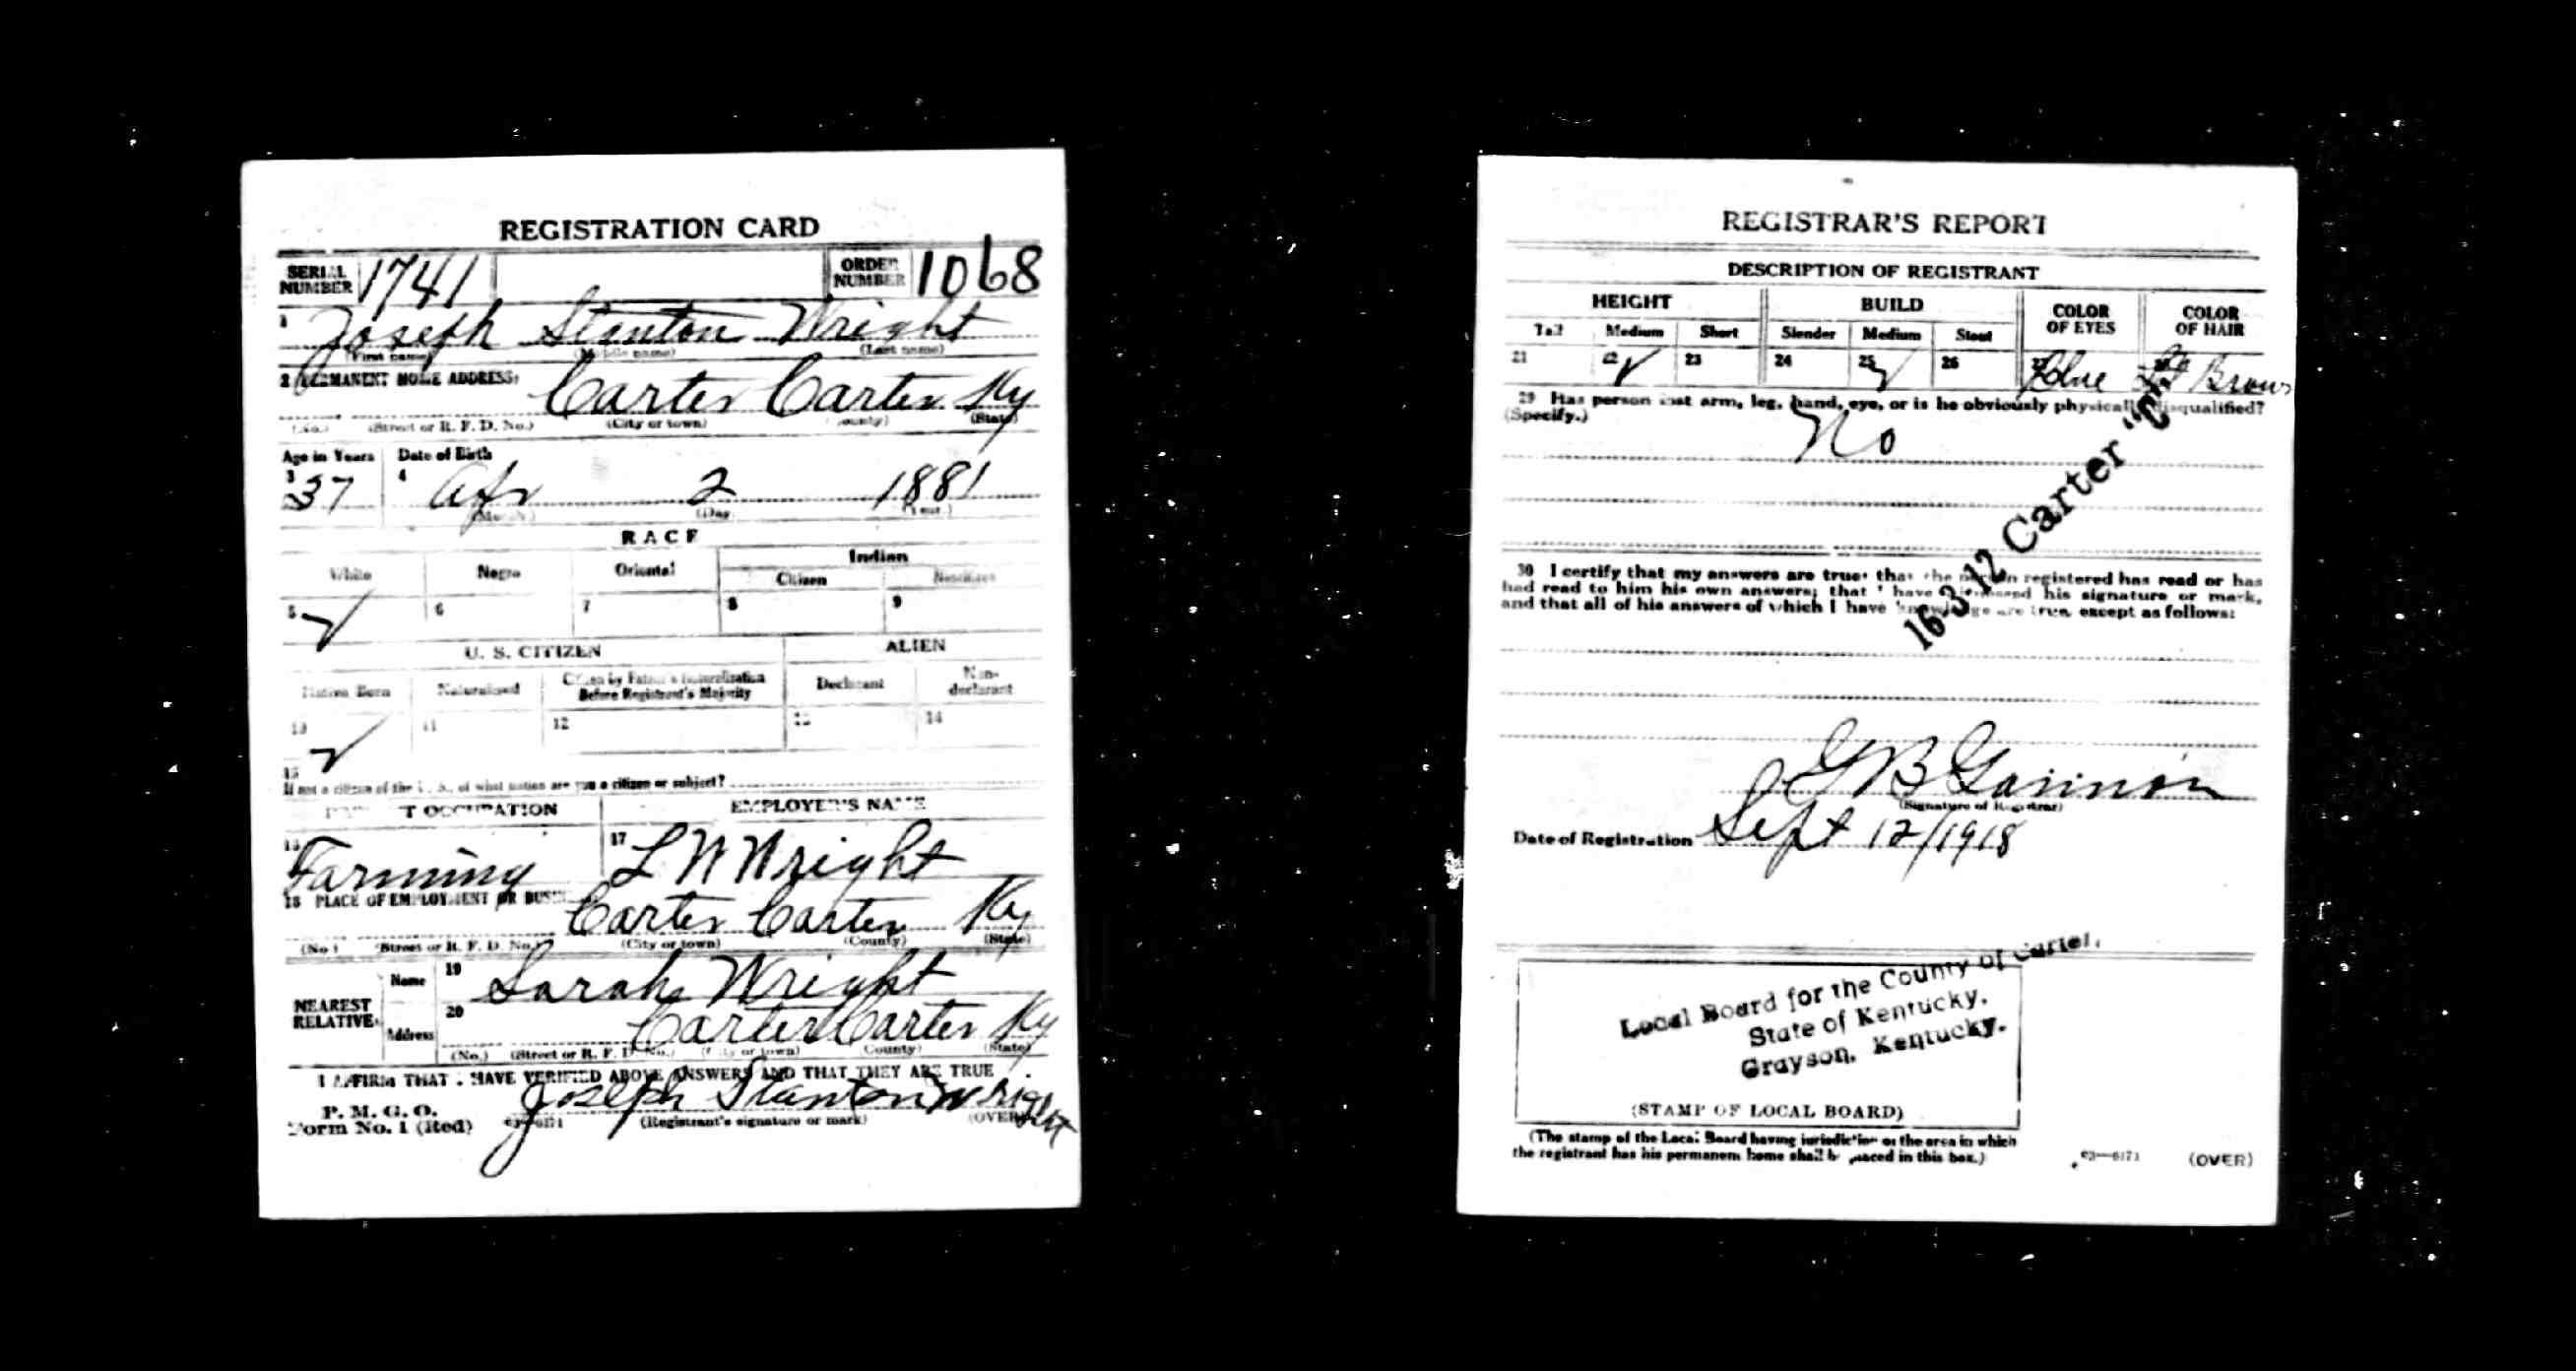 REGISTRATION CARD
SERIAL NUMBER 1741 ORDER NUMBER 1068
1 Joseph Stanton Wright
(First name) (Middle name) (Last name)
2 PERMANENT HOME ADDRESS:
Carter Carter Ky
(No.) (Street or R. F. D. No.) (City or town) (County) (State)
Age in Years Date of Birth
3 37 4 Apr 2 1881
(Month) (Day) (Year.)
RACE
White Negro Oriental Indian
Citizen Noncitizen
5 ✓ 6 7 8 9
U. S. CITIZEN ALIEN
Native Born Naturalized Citizen by Father's Naturalization Before Registrant's Majority Declarant Non-declarant
10 ✓ 11 12 13 14
15
If not a citizen of the U. S., of what nation are you a citizen or subject?
PRESENT OCCUPATION EMPLOYER'S NAME
Farming 17 L W Wright
18 PLACE OF EMPLOYMENT OR BUSINESS
Carter Carter Ky
(No.) (Street or R. F. D. No.) (City or town) (County) (State)
NEAREST RELATIVE Name 19 Sarah Wright
Address 20 Carter Carter Ky
(No.) (Street or R. F. D. No.) (City or town) (County) (State)
I AFFIRM THAT I HAVE VERIFIED ABOVE ANSWERS AND THAT THEY ARE TRUE
P. M. G. O.
Form No. 1 (Red) Joseph Stanton Wright
03—6171 (Registrant's signature or mark) (OVER)
REGISTRAR'S REPORT
DESCRIPTION OF REGISTRANT
HEIGHT BUILD COLOR OF EYES COLOR OF HAIR
Tall Medium Short Slender Medium Stout
21 22 ✓ 23 24 25 ✓ 26 27 Blue Lt Brown
29 Has person lost arm, leg, hand, eye, or is he obviously physically disqualified?
(Specify.)
No
16-3-12 Carter "C"
30 I certify that my answers are true; that the person registered has read or has
had read to him his own answers; that I have witnessed his signature or mark,
and that all of his answers of which I have knowledge are true, except as follows:
G B Gannon
(Signature of Registrar)
Date of Registration Sept 12/1918
Local Board for the County of Carter,
State of Kentucky,
Grayson, Kentucky.
(STAMP OF LOCAL BOARD)
(The stamp of the Local Board having jurisdiction of the area in which
the registrant has his permanent home shall be placed in this box.)
03—6171 (OVER)